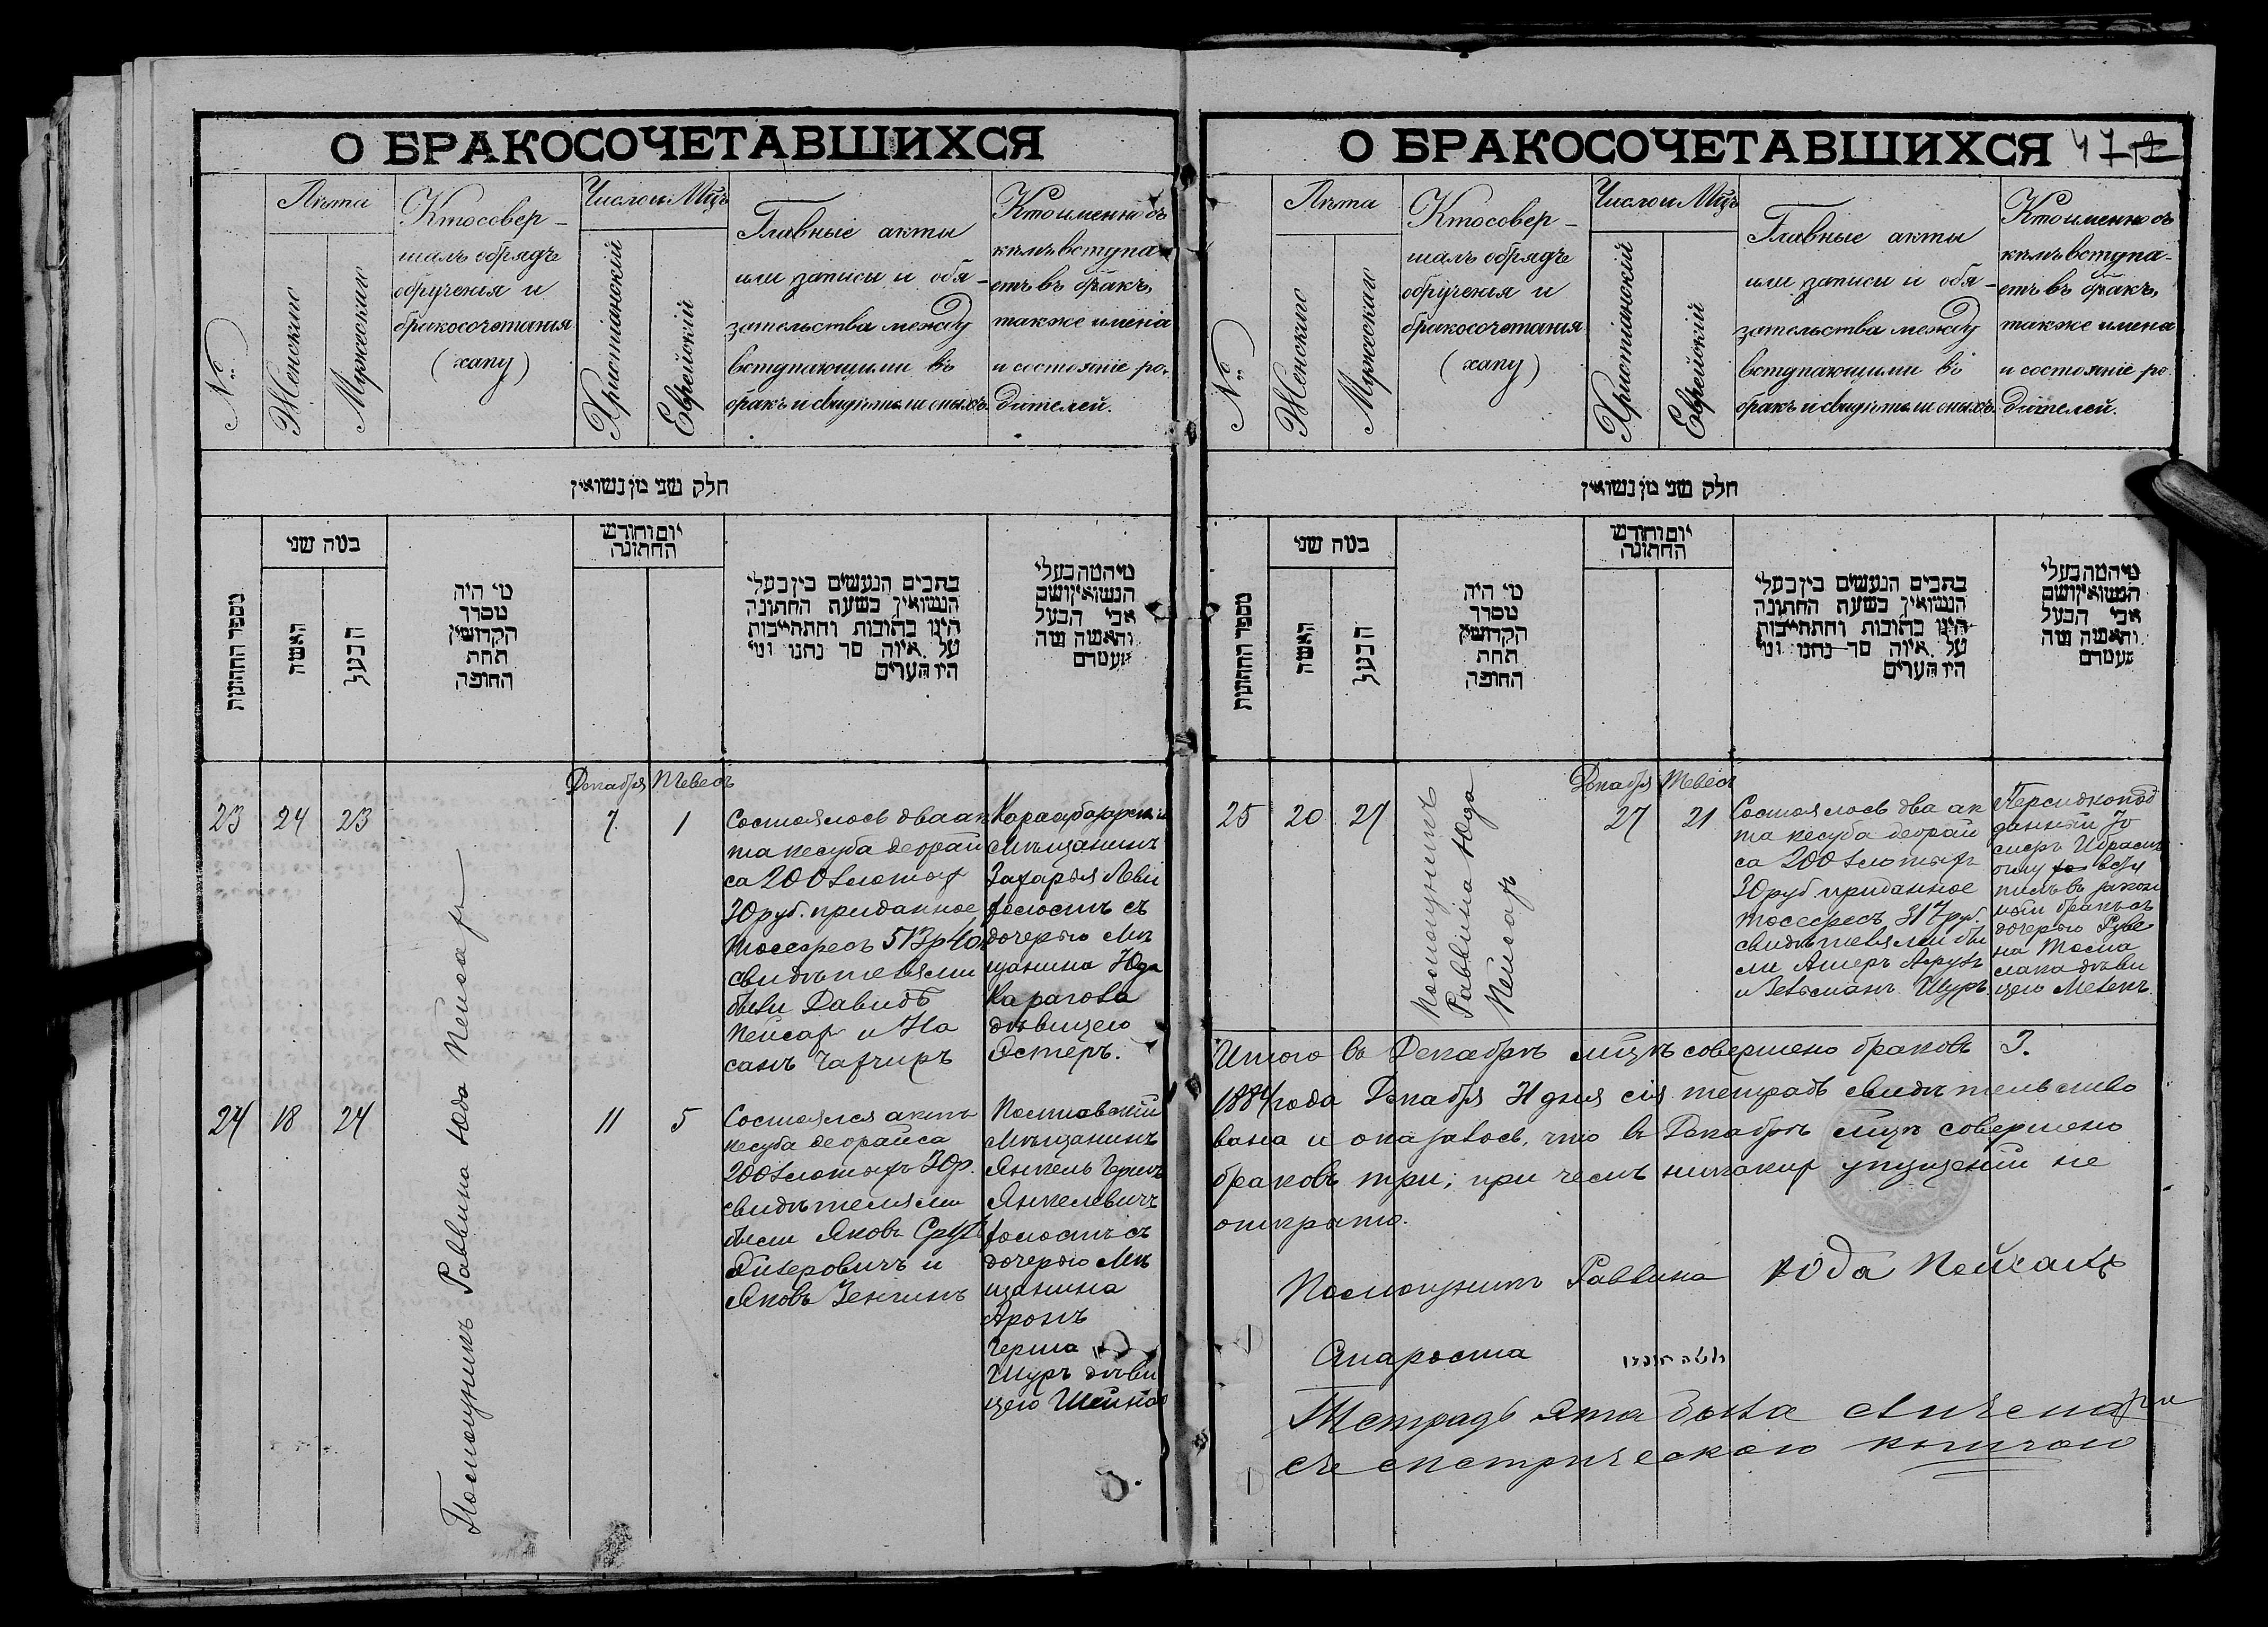 О БРАКОСОЧЕТАВШИХСЯ
№
Лѣта
Женскаго
Мужескаго
Кто совер-
шалъ обрядъ
обрученія и
бракосочетанія
(хапу)
Число и Мцъ
Христіанскій
Еврейскій
Главные акты
или записи и обя-
зательства между
вступающими въ
бракъ и свидѣтели оныхъ.
Кто именно съ
кѣмъ вступа-
етъ въ бракъ,
также имена
и состояніе ро-
дителей.
חלק שני מן נשואין
מספר החתונות
במה שני
האשה
הבעל
מי היה
מסדר
הקדושין
תחת
החופה
יום וחודש
החתונה
כתבים הנעשים בין בעלי
הנשואין בשעת החתונה
היינו כתובות והתחייבות
על איזה סך נתנו ומי
היו העדים
מי המה בעלי
הנשואין ושם
אבי הבעל
והאשה מה
מעמדם
Декабря Тевесъ
23 24 23
7 1
Состоялось два ак
та кесуба деорай
са 200 злотых
30 руб. приданное
тосефесъ 513 р 40
свидѣтелями
были Давидъ
Пейсах и На
санъ
мѣщанинъ
Захарья Леви
холостъ съ
дочерью мѣ
щанина Юда
Карагова
дѣвицею
Эстеръ.
24 18 24
11 5
Состоялся актъ
кесуба деорайса
200 злотыхъ 30 р.
свидѣтелями
были Яковъ
и
Яковъ Зенгинъ
мѣщанинъ
Янкель Герш
Янкелевичъ
холостъ съ
дочерью мѣ
щанина
Аронъ
Герша
Шуръ дѣви
цею Шейна
Помощникъ Раввина Юда Пейсах
О БРАКОСОЧЕТАВШИХСЯ 47
№
Лѣта
Женскаго
Мужескаго
Кто совер-
шалъ обрядъ
обрученія и
бракосочетанія
(хапу)
Число и Мцъ
Христіанскій
Еврейскій
Главные акты
или записи и обя-
зательства между
вступающими въ
бракъ и свидѣтели оныхъ.
Кто именно съ
кѣмъ вступа-
етъ въ бракъ,
также имена
и состояніе ро-
дителей.
חלק שני מן נשואין
מספר החתונות
במה שני
האשה
הבעל
מי היה
מסדר
הקדושין
תחת
החופה
יום וחודש
החתונה
כתבים הנעשים בין בעלי
הנשואין בשעת החתונה
היינו כתובות והתחייבות
על איזה סך נתנו ומי
היו העדים
מי המה בעלי
הנשואין ושם
אבי הבעל
והאשה מה
מעמדם
Декабря Тевесъ
25 20 27
Помощникъ
Раввина Юда
Пейсах
27 21
Состоялось два ак
та кесуба деорай
са 200 злотыхъ
30 руб. приданное
тосефесъ 317 руб.
свидѣтелями бы
ли Ашеръ
и Зельманъ Шуръ
Персидкопод
данный
всту
пилъ въ закон
ный бракъ съ
дочерью Руве
на
дѣви
цею
Итого въ Декабрѣ мцѣ совершено браковъ 3.
1884 года Декабря 31 дня сія тетрадь свидѣтельство
вана и оказалось, что въ Декабрѣ мцѣ совершено
браковъ три; при чемъ никаких упущеній не
открыто.
Помощникъ Раввина Юда Пейсахъ
Староста
Тетрадь эта была сличена
съ метрическою книгою